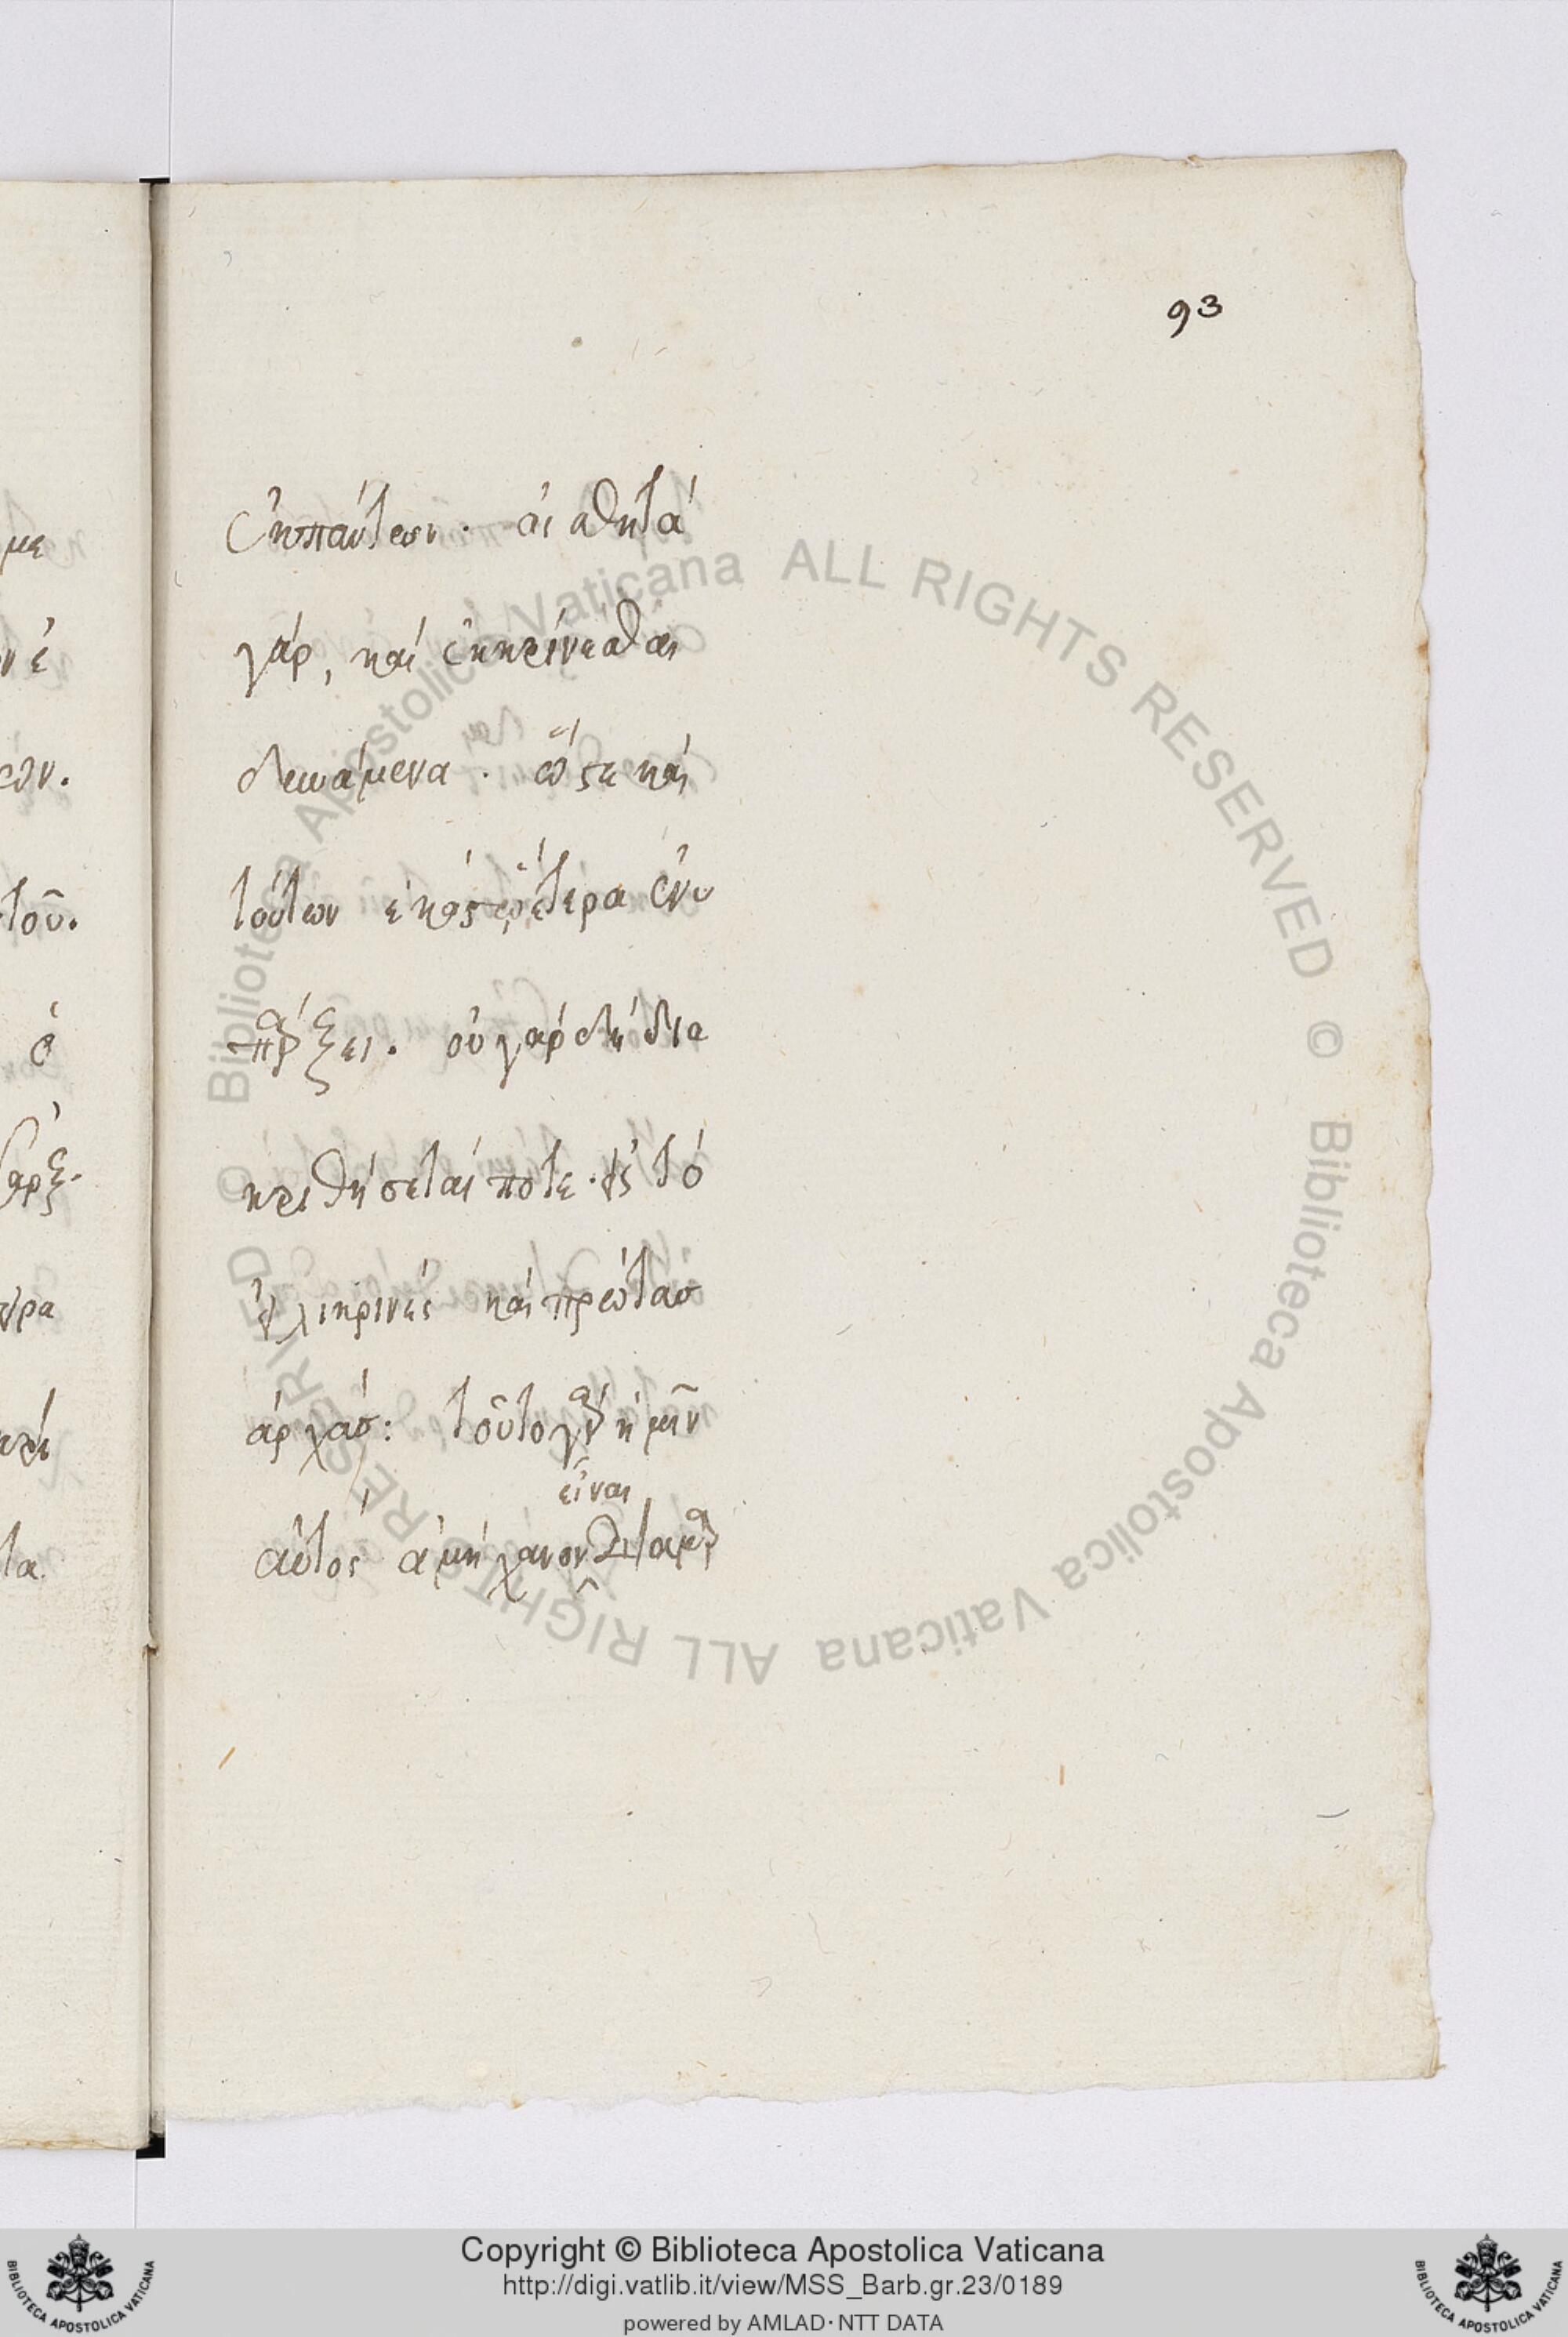 93
ἐκπάντων. αἰσθητά
γάρ, καὶ ἐκκρίνεσθαι
δυνάμενα. ὥστε καὶ
τούτων ἑκάστω ἕτερα ἐνυ
πάρξει. οὐ γάρ δή δια
κριθήσεταί ποτε. εἰς τό
εἰλικρινές καὶ πρώτασ
ἀρχάσ: τοῦτο γὰρ ἡμῖν
εἶναι
αὐτός ἀμήχανον
με
ων.
του.
ὁ
τα.
Biblioteca Apostolica Vaticana ALL RIGHTS RESERVED © Biblioteca Apostolica Vaticana ALL RIGHTS RESERVED ©
Copyright © Biblioteca Apostolica Vaticana
http://digi.vatlib.it/view/MSS_Barb.gr.23/0189
powered by AMLAD·NTT DATA
BIBLIOTECA APOSTOLICA VATICANA
BIBLIOTECA APOSTOLICA VATICANA